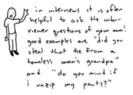 in interviews it is often
helpful to ask the inter-
viewer questions of your own!
good examples are "did you
steal that tie from a
homeless man's grandpa"
and "do you mind if
i unzip my pants?"